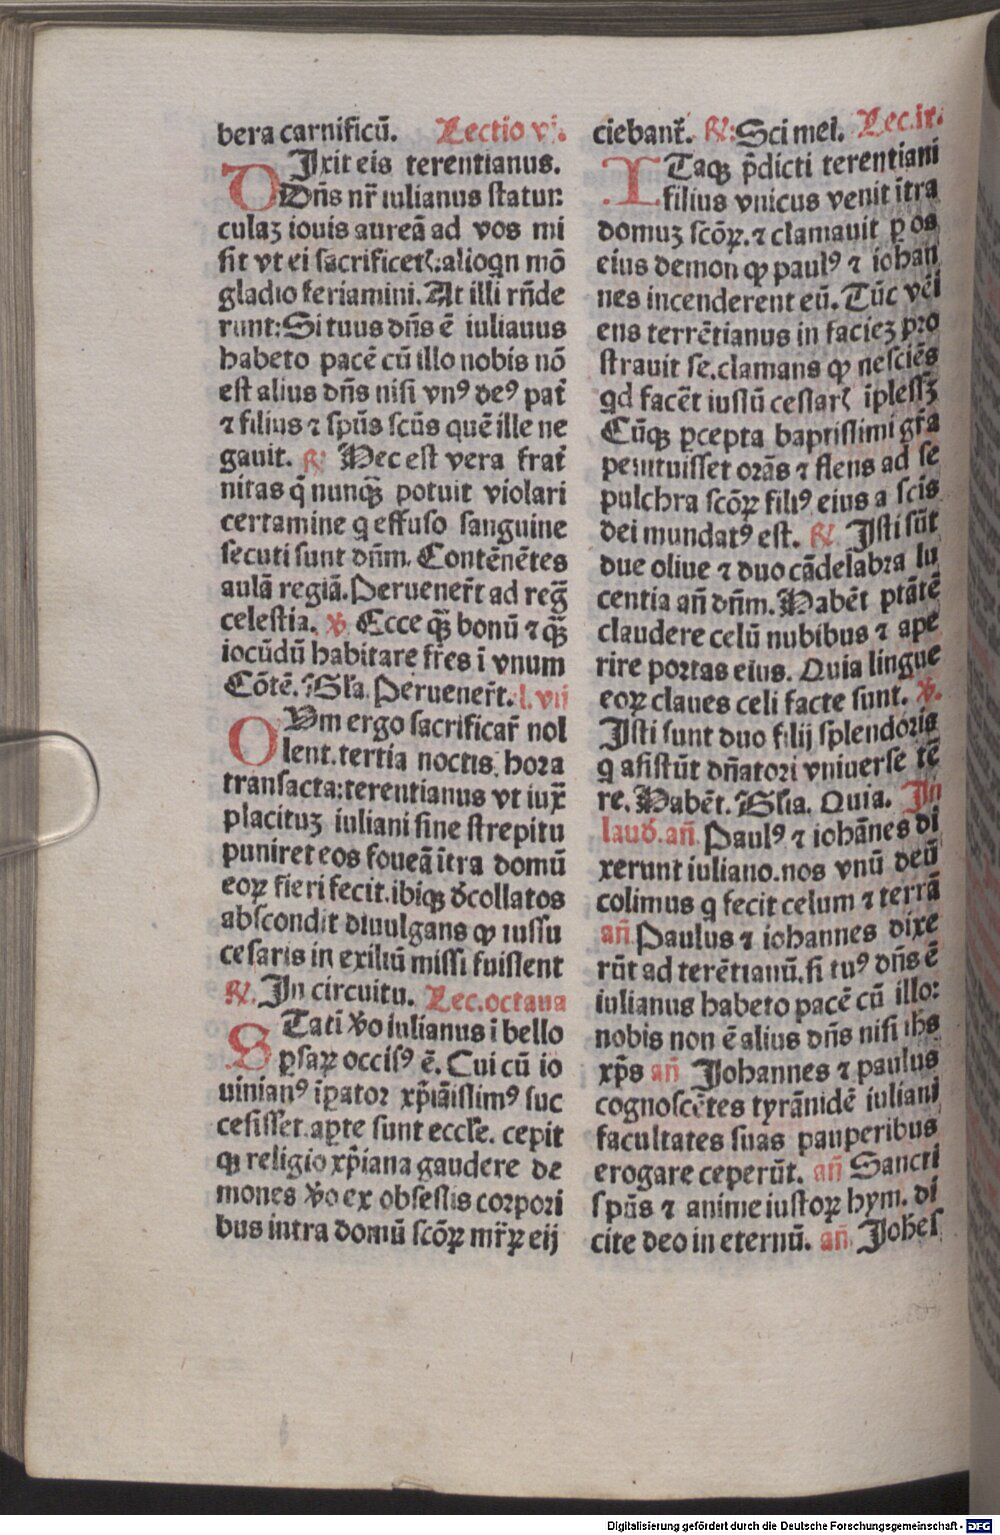 bera carnificū. Lectio vi.
DIxit eis terentianus.
Dn̄s nr̄ iulianus statun
culaʒ iouis aureā ad vos mi
sit vt ei sacrificetꝭ:alioqn mō
gladio feriamini. At illi rn̄de
runt: Si tuus dn̄s ē iulianus
habeto pacē cū illo nobis nō
est alius dn̄s nisi vnꝰ deꝰ pat̄
⁊ filius ⁊ spūs scūs quē ille ne
gauit. ℟ Hec est vera frat̄
nitas q̄ nunqꝫ potuit violari
certamine q effuso sanguine
secuti sunt dn̄m. Contēnētes
aulā regiā. Peruener̄t ad reḡ
celestia. ℣ Ecce qꝫ bonū ⁊ qꝫ
iocūdū habitare fr̄es ī vnum
Cōtē. Gl̄a. Peruener̄t. l. vii
CVm ergo sacrificar̄ nol
lent. tertia noctis hora
transacta: terentianus vt iux̄
placituʒ iuliani sine strepitu
puniret eos foueā ītra domū
eoꝝ fieri fecit. ibiqꝫ d̄collatos
abscondit diuulgans ꝙ iussu
cesaris in exiliū missi fuissent
℟. In circuitu. Lec. octaua
STatī v̄o iulianus ī bello
ꝑsaꝝ occisꝰ ē. Cui cū io
uinianꝰ īꝑator xp̄iāissimꝰ suc
cesisset. aꝑte sunt eccl̄e. cepit
qꝫ religio xp̄iana gaudere de
mones v̄o ex obsessis corpori
bus intra domū scōꝝ mr̄ꝝ eij
ciebant̄. ℟: Sci mei. Lec. ix.
ITaqꝫ p̄dicti terentiani
filius vnicus venit ītra
domuʒ scōꝝ. ⁊ clamauit ꝑ os
eius demon ꝙ paulꝰ ⁊ iohan
nes incenderent eū. Tūc vēi
ens terrētianus in facieʒ pro
strauit se. clamans ꝙ nesciēs
qd facēt iussū cesarꝭ īplessꝫ
Cūqꝫ ꝑcepta baptissimi gr̄a
penituisset orās ⁊ flens ad se
pulchra scōꝝ filiꝰ eius a scis
dei mundatꝰ est. ℟ Isti sūt
due oliue ⁊ duo cādelabra lu
centia an̄ dn̄m. Habēt ptātē
claudere celū nubibus ⁊ ape
rire portas eius. Quia lingue
eoꝝ claues celi facte sunt. ℣.
Isti sunt duo filij splendoris
q asistūt dn̄atori vniuerse tē
re. Habēt. Gl̄ia. Quia. In
laud̄. an̄. Paulꝰ ⁊ iohānes di
xerunt iuliano. nos vnū deū
colimus q fecit celum ⁊ terrā
an̄ Paulus ⁊ iohannes dixe
rūt ad terētianū. si tuꝰ dn̄s ē
iulianus habeto pacē cū illo:
nobis non ē alius dn̄s nisi ih̄s
xp̄s an̄ Johannes ⁊ paulus
cognoscētes tyrānidē iuliani
facultates suas pauperibus
erogare ceperūt. an̄ Sancti
spūs ⁊ anime iustoꝝ hym. di
cite deo in eternū. an̄. Johes
Digitalisierung gefördert durch die Deutsche Forschungsgemeinschaft - DFG